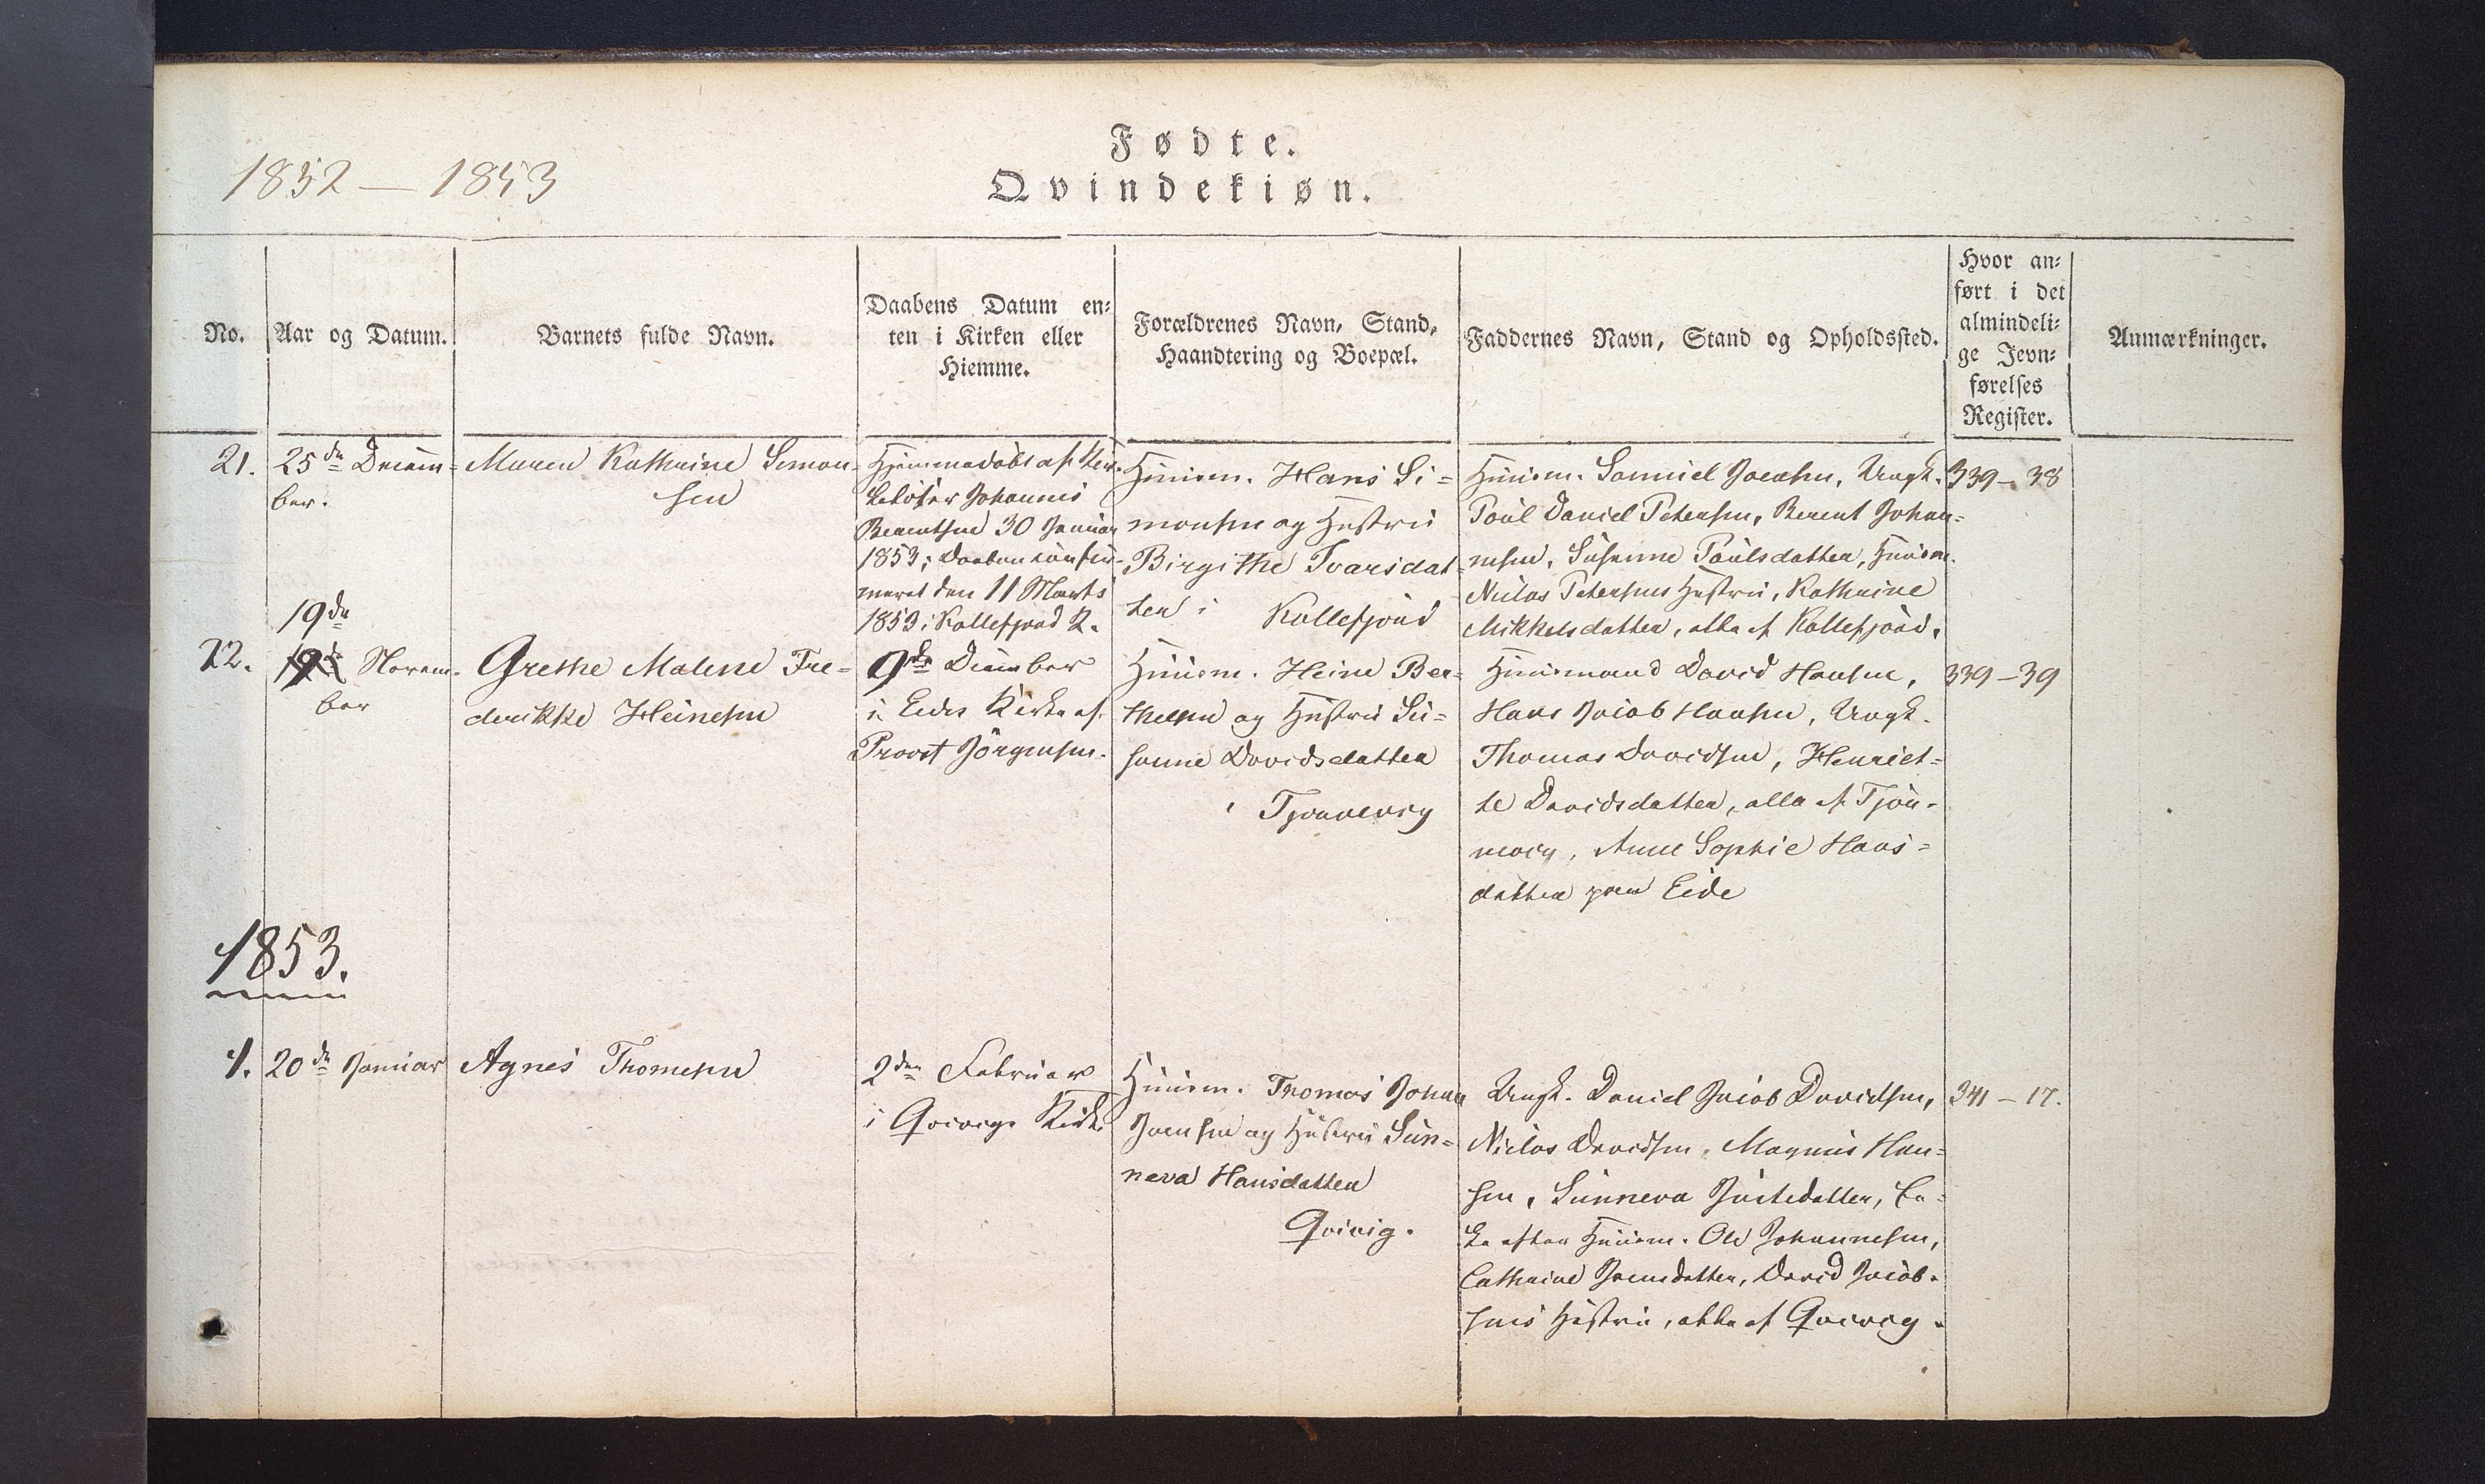 1852 — 1853
Fødte.
Qvindekiøn.
No.
Aar og Datum.
Barnets fulde Navn.
Daabens Datum en-
ten i Kirken eller
Hiemme.
Forældrenes Navn, Stand,
Haandtering og Boepæl.
Faddernes Navn, Stand og Opholdssted.
Hvor an-
ført i det
almindeli-
ge Jevn-
førelses
Register.
Anmærkninger.
21.
25de Decem-
ber.
Maren Kathrine Simon-
sen
Hjemmedøbt af
Johannes
Berentsen 30 Januar
1853; Daaben confir-
meret den 11 Marts
1853 i Kollefjord K.
Huusm. Hans Si-
monsen og Hustru
Birgithe Ivarsdat-
ter i Kollefjord
Huusm. Samuel Joensen, Ungk.
Poul Daniel Petersen, Berent Johan-
nesen, Susanne Poulsdatter, Huusm.
Niclas Petersens Hustru, Kathrine
Mikkelsdatter, alle af Kollefjord.
339 – 38
22.
19de
Novem-
ber
Grethe Malene Fre-
derikke Heinesen
9de December
i Eides Kirke af
Provst Jørgensen.
Huusm. Heine Ber-
thelsen og Hustru Su-
sanne Davidsdatter
i Tjørnevig
Huusmand David Hansen,
Hans Jacob Hansen, Ungk.
Thomas Davidsen, Henriet-
te Davidsdatter, alle af Tjør-
nevig, Anne Sophie Hans-
datter paa Eide
339 – 39
1853.
1.
20de Januar
Agnes Thomesen
2den Februar
i Qvivigs Kirke
Huusm. Thomas Johan
Joensen og Hustru Sun-
neva Hansdatter
Qvivig.
Ungk. Daniel Jacob Davidsen,
Niclas Davidsen, Magnus Han-
sen, Sunneva Justsdatter, En-
ke efter Huusm. Ole Johannesen,
Cathrine Joensdatter, David Jacob-
sens Hustru, alle af Qvivig.
341 – 17.